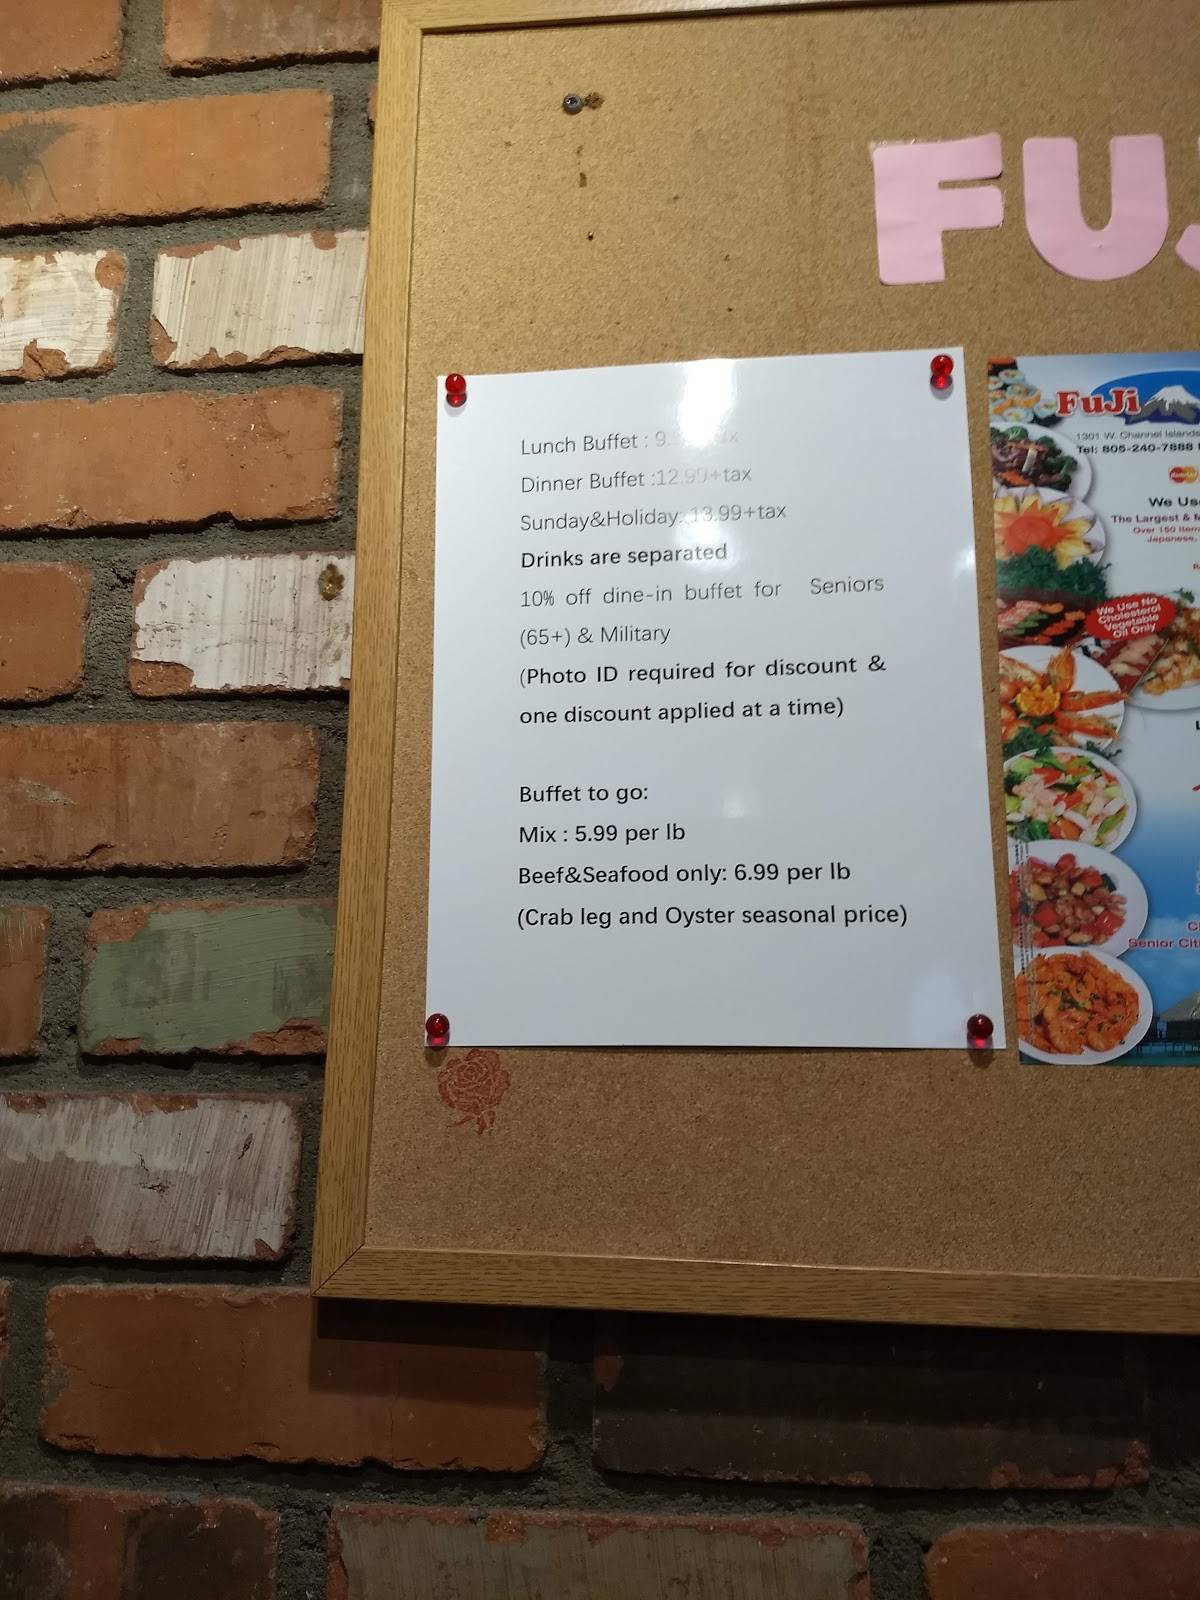 FUJ
Lunch Buffet : 9.
Dinner Buffet :12.99+tax
Sunday&Holiday: 13.99+tax
Drinks are separated
10% off dine-in buffet for Seniors
(65+) & Military
(Photo ID required for discount &
one discount applied at a time)
Buffet to go:
Mix : 5.99 per lb
Beef&Seafood only: 6.99 per lb
(Crab leg and Oyster seasonal price)
FuJi
1301 W. Channel Islands
Tel: 805-240-7888
We Us
The Largest &
Over 150 Item
Japanese,
We Use No
Cholesterol
Vegetable
Oil Only
Senior Citi